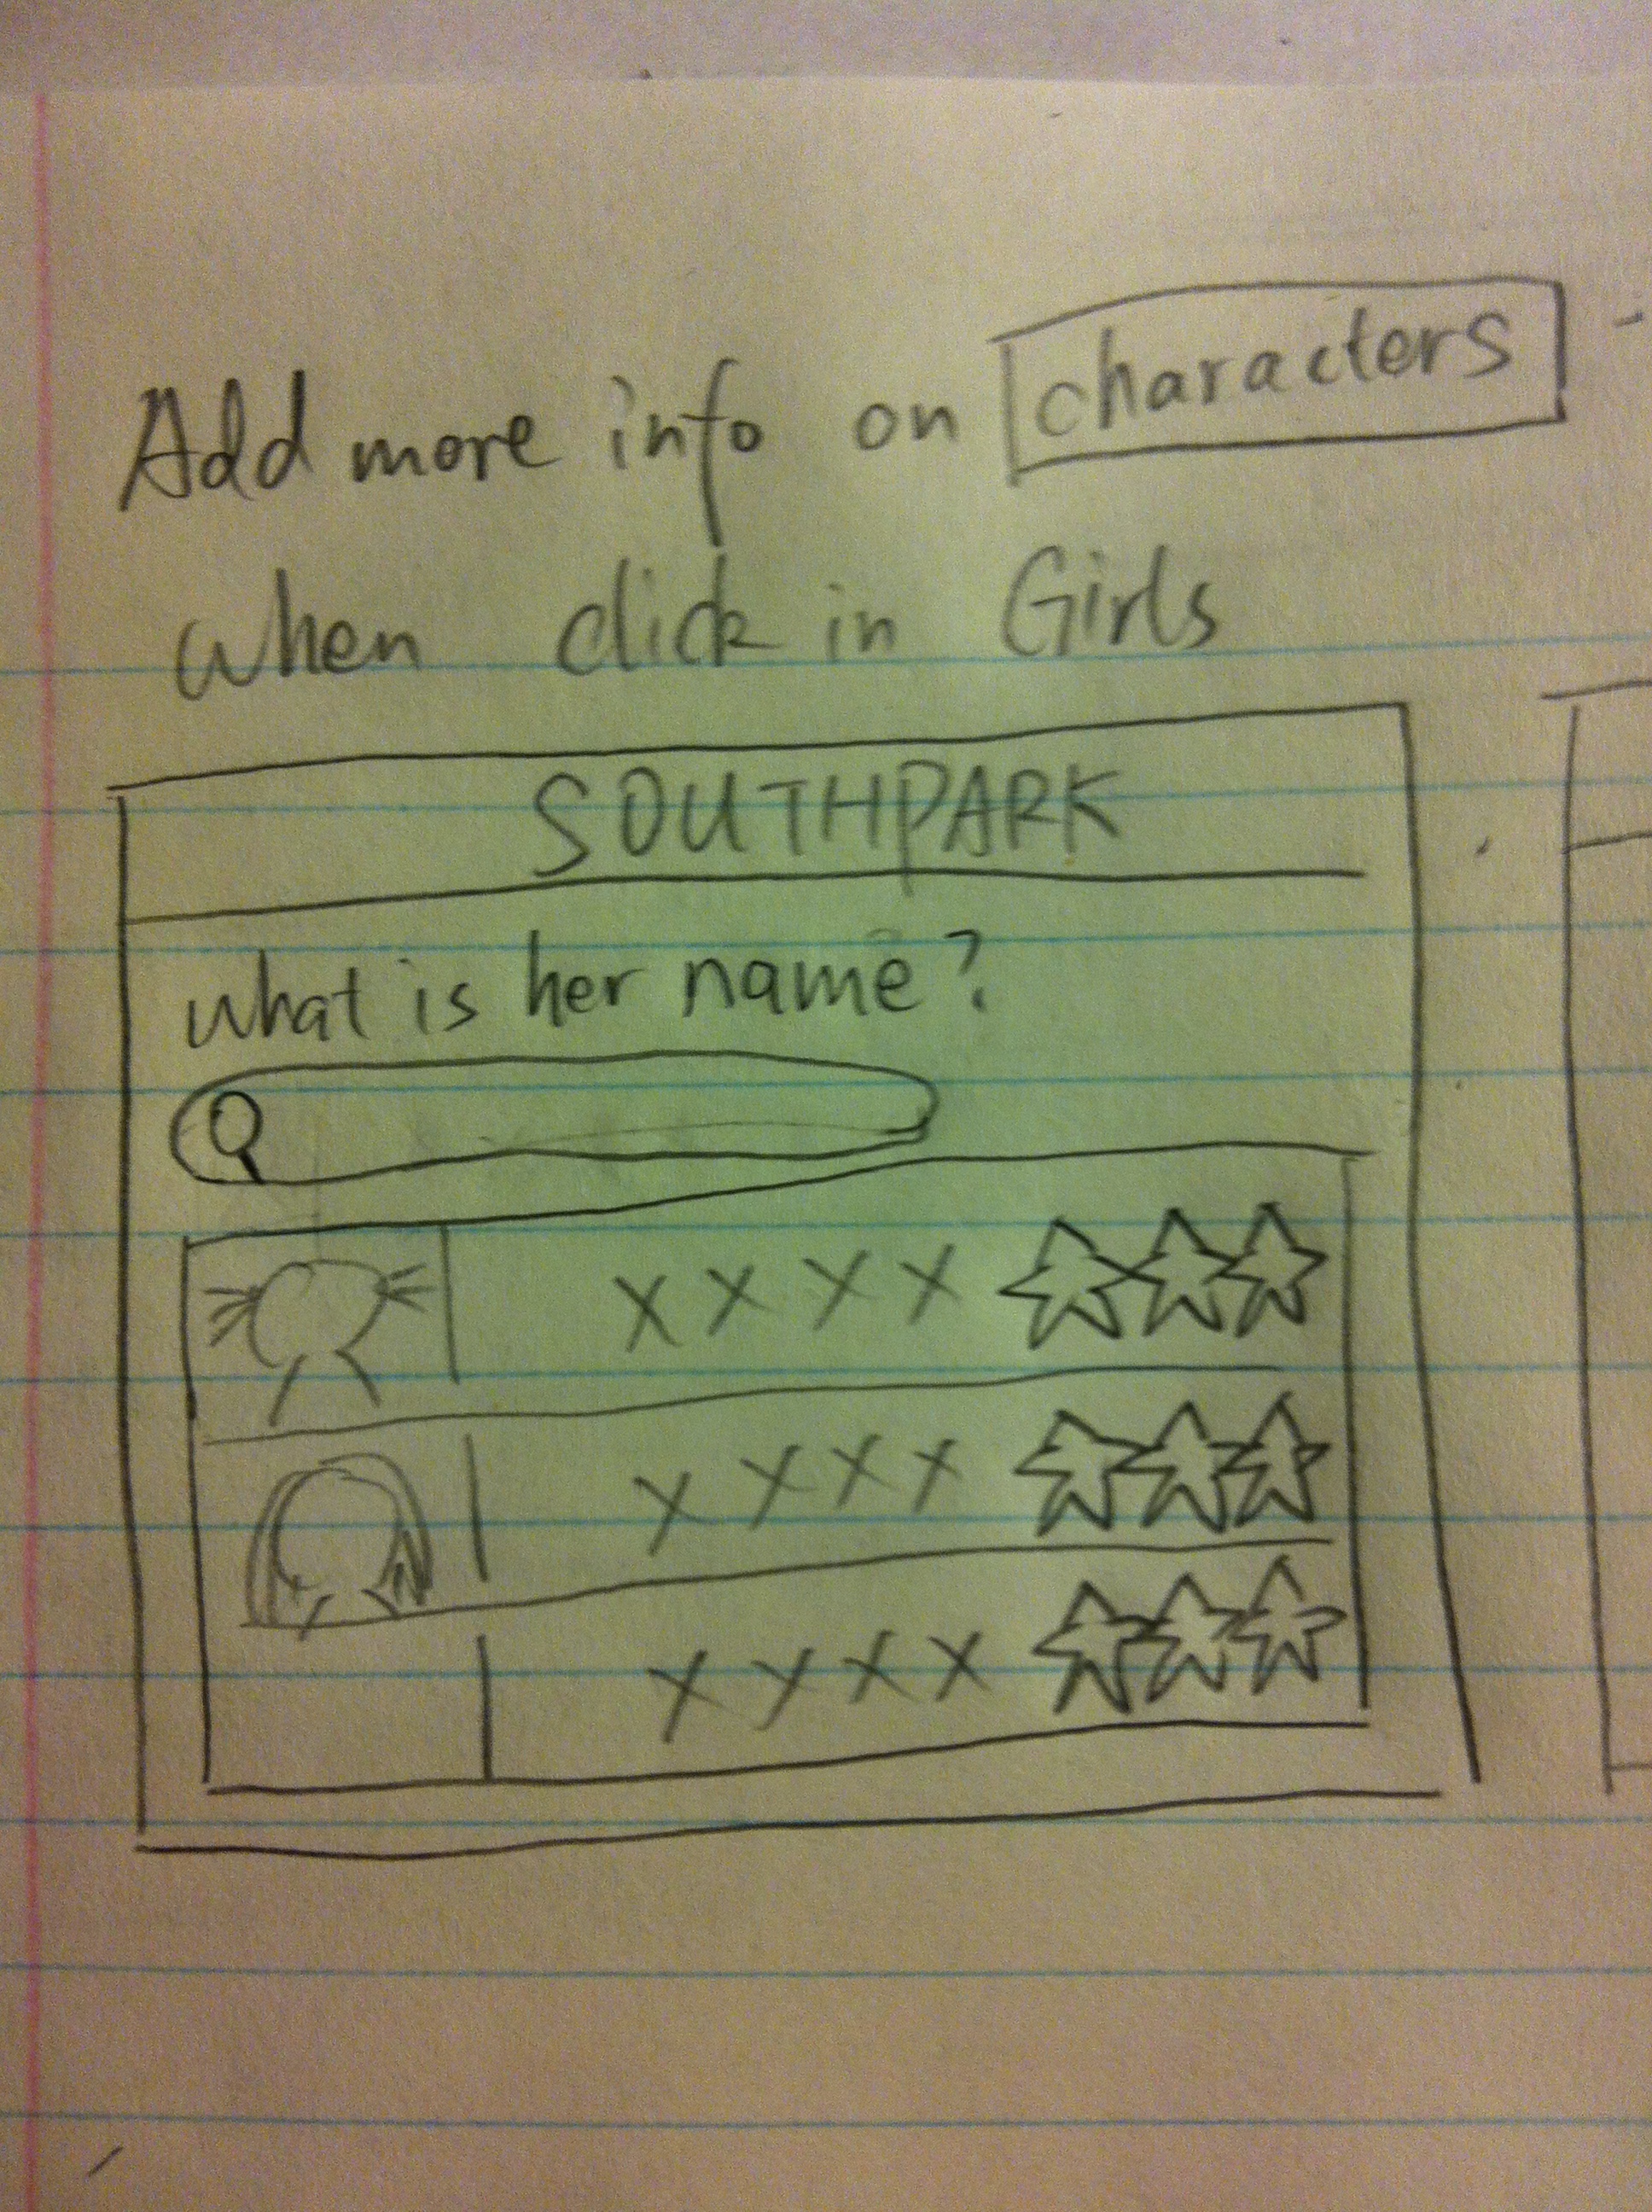 Add more info on characters
when click in Girls
SOUTHPARK
what is her name?
X X X X
X X X X
X X X X